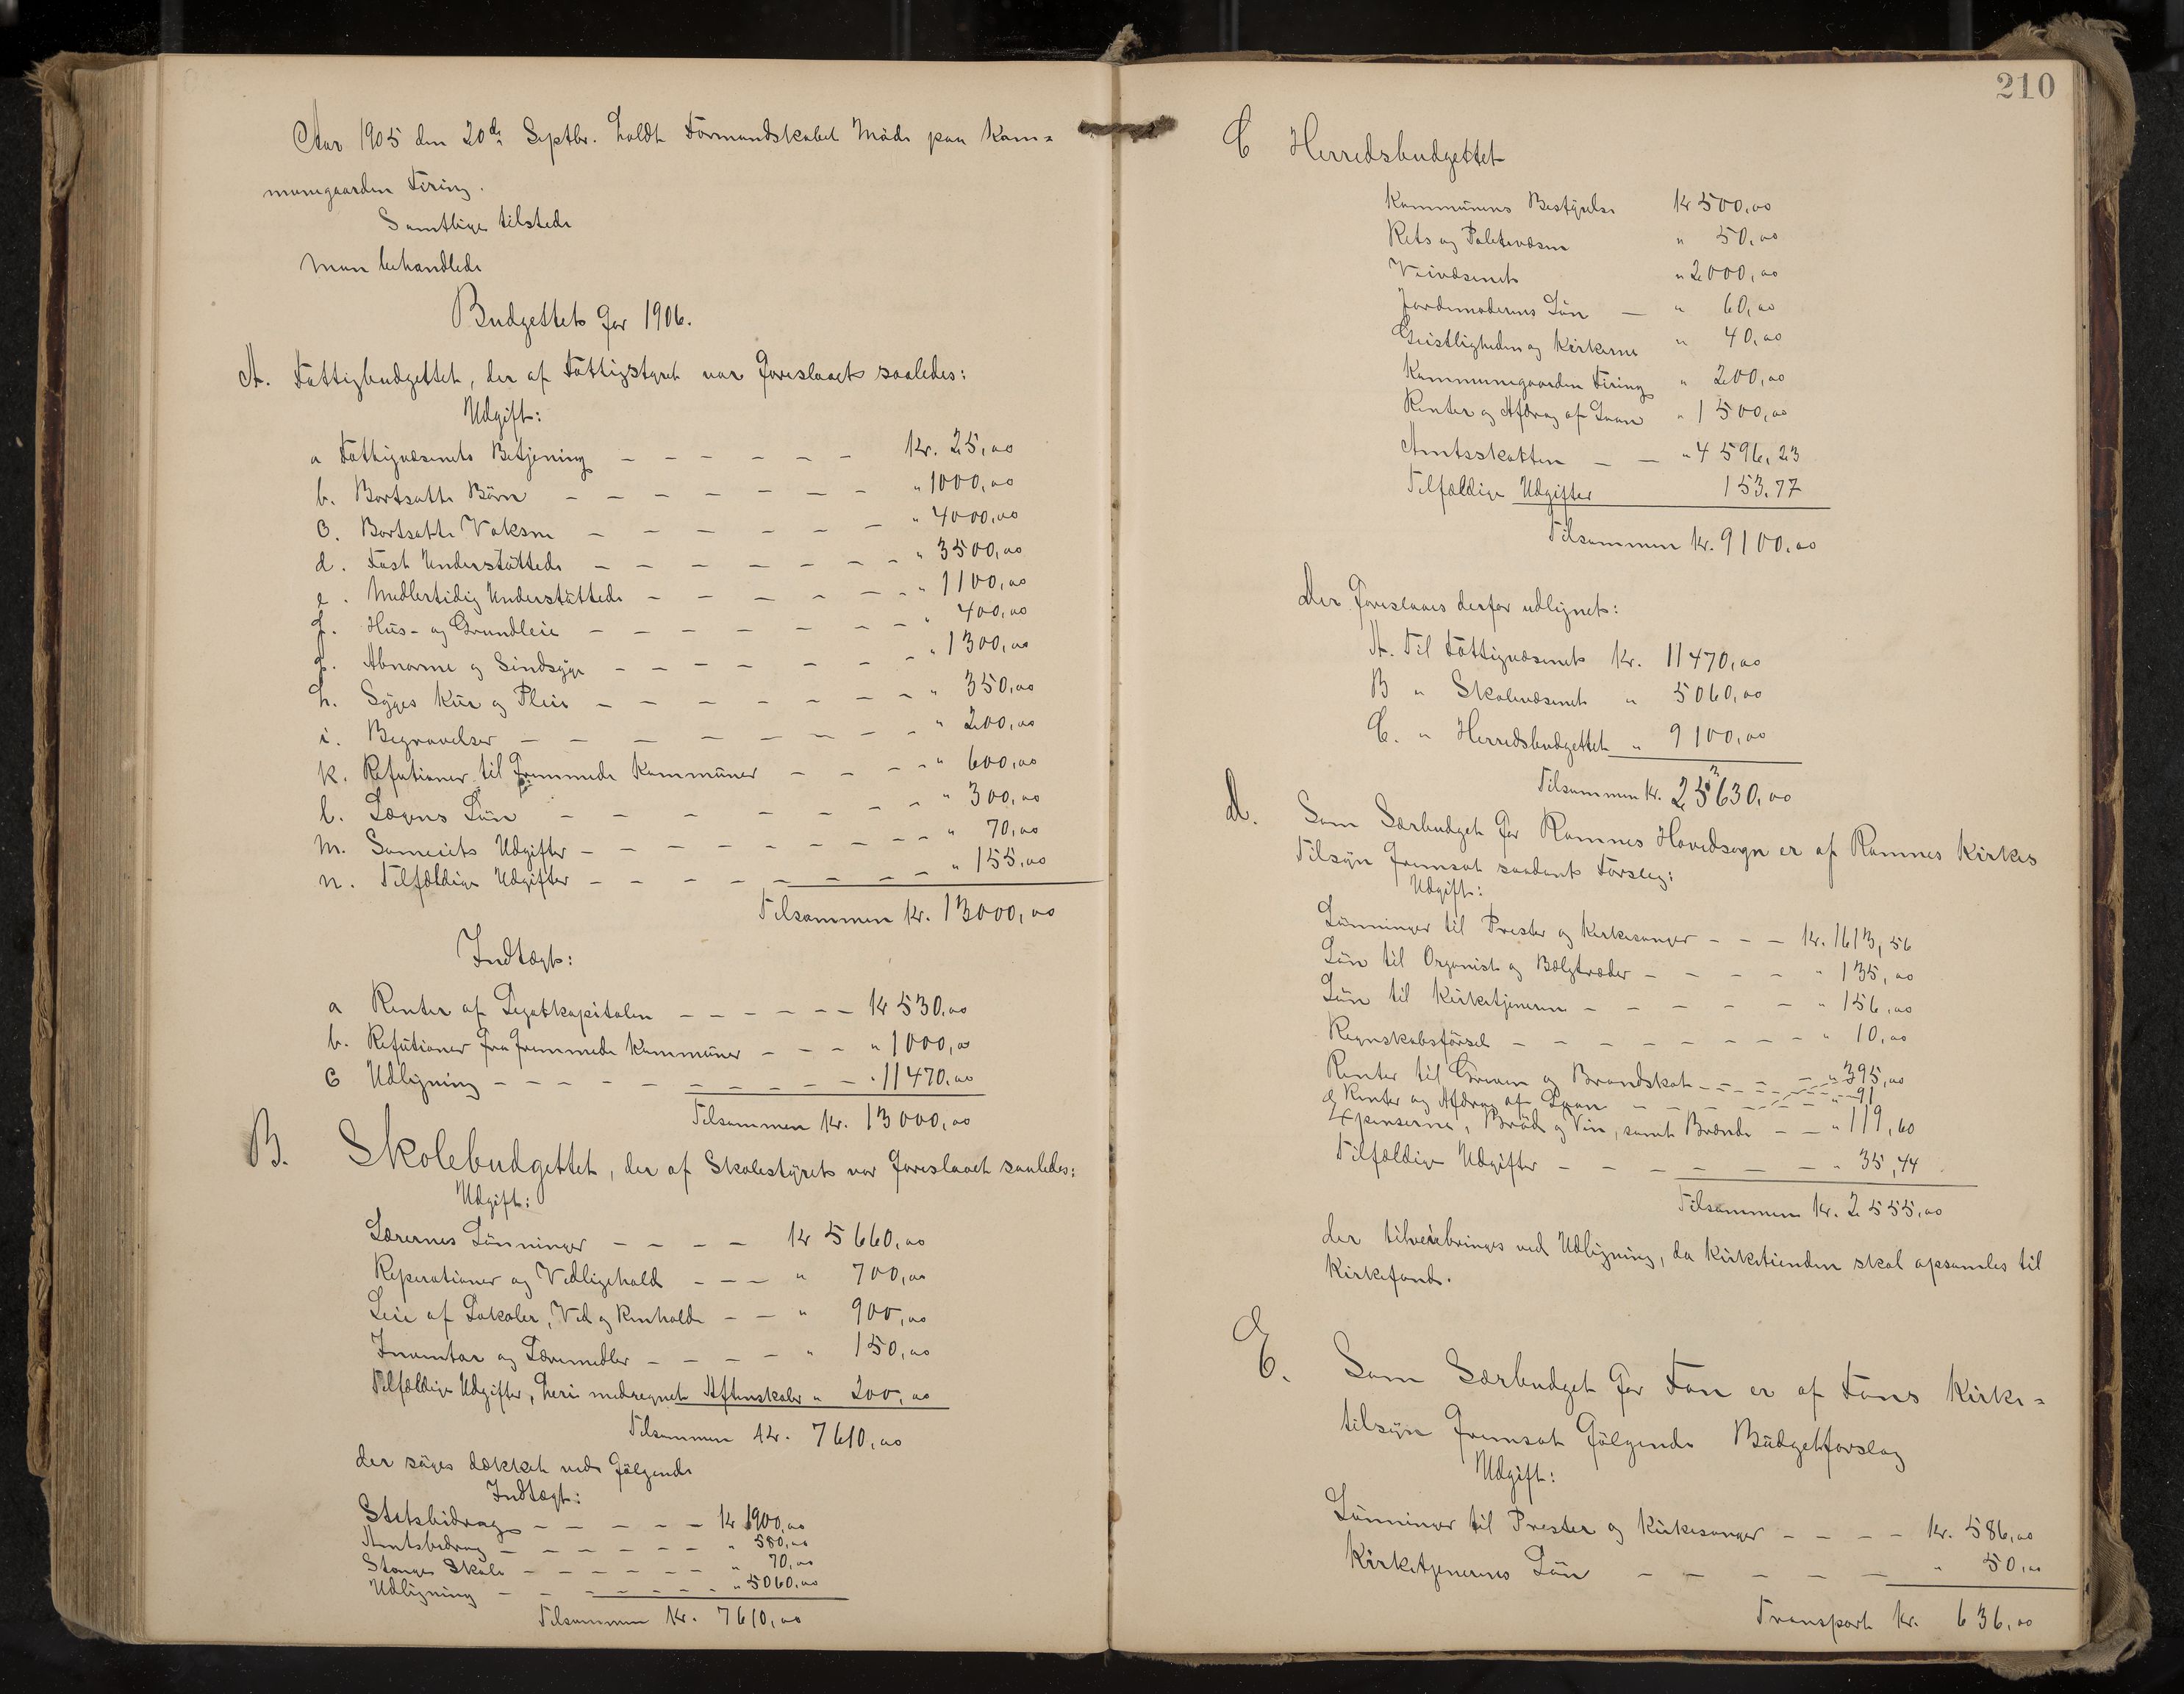 Aar 1905 den 20de Septbr. holdt Formandskabet Möde paa Kom=
munegaarden Firing.
Samtlige tilstede
Man behandlede
Budgettet for 1906.
A. Fattigbudgettet, der af Fattigstyret var foreslaaet saaledes:
Udgift:
a Fattigvæsenets Betjening — — — — — — Kr. 25,00
b. Bortsatte Börn — — — — — — — " 1000,00
c. Bortsatte Voksne — — — — — — — " 4000,00
d. Fast Understöttede — — — — — — — " 3500,00
e. Midlertidig Understöttede — — — — — — " 1100,00
f. Hus- og Grundleie — — — — — — — " 400,00
g. Abnorme og Sindsyge — — — — — — — " 1300,00
h. Syges Kur og Pleie — — — — — — — " 350,00
i. Begravelser — — — — — — — — " 200,00
k. Refutioner til fremmede Kommuner — — — — " 600,00
l. Lægens Lön — — — — — — — " 300,00
m. Sameiets Udgifter — — — — — — — — " 70,00
n. Tilfældige Udgifter — — — — — — — — " 155,00
Tilsammen Kr. 13000,00
Indtægt:
a Renter af Legatkapitalen — — — — — — Kr 530,00
b. Refutioner fra fremmede Kommuner — — — " 1000,00
c Udligning — — — — — — — — — " 11470,00
Tilsammen Kr. 13000,00
B. Skolebudgettet, der af Skolestyret var foreslaaet saaledes:
Udgift:
Lærernes Lönninger — — — — Kr 5660,00
Reperationer og Vedligehold — — — " 700,00
Leie af Lokaler, Ved og Renhold — — " 900,00
Inventar og Læremidler — — — — " 150,00
Tilfældige Udgifter, heri medregnet Aftenskoler " 200,00
Tilsammen Kr. 7610,00
der söges dækket ved fölgende
Indtægt:
Statsbidrag — — — — — Kr 1900,00
Amtsbidrag — — — — — — " 580,00
Stanges Skole — — — — — — " 70,00
Udligning — — — — — — — " 5060,00
Tilsammen Kr. 7610,00
210
C Herredsbudgettet
Kommunens Bestyrelse Kr 500,00
Rets og Politivæsen " 50,00
Veivæsenet " 2000,00
Jordemoderens Lön — " 60,00
Geistligheden og Kirkerne " 40,00
Kommunegaarden Firing " 200,00
Renter og Afdrag af Laan " 1500,00
Amtsskatten — — " 4596,23
Tilfældige Udgifter 153.77
Tilsammen Kr. 9100,00
Der foreslaaes derfor udlignet:
A. Til Fattigvæsenet Kr. 11470,00
B " Skolevæsenet " 5060,00
C. " Herredsbudgettet " 9100,00
Tilsammen Kr. 25630,00
d. Som Særbudget for Ramnes Hovedsogn er af Ramnes Kirkes
Tilsyn fremsat saadant Forslag:
Udgift:
Lönninger til Prester og Kirkesanger — — — Kr. 1613,56
Lön til Organist og Bælgtræder — — — — " 135,00
Lön til Kirketjeneren — — — — — " 156,00
Regnskabsförsel — — — — — — — — " 10,00
Renter til Greven og Brandskat — — — — " 395,00
og Renter og Afdrag af Laan — — — — — " 91
Expenserne, Bröd og Vin, samt Brænde — — " 119,60
Tilfældige Udgifter — — — — — — — " 35,44
Tilsammen Kr. 2555,00
der tilveiebringes ved Udligning, da Kirketienden skal opsamles til
Kirkefond.
E. Som Særbudget for Fon er af Fons Kirke=
tilsyn fremsat fölgende Budgetforslag
Udgift:
Lönninger til Prester og Kirkesanger — — — — Kr. 586,00
Kirketjenerens Lön — — — — — " 50,00
Transport Kr. 636,00